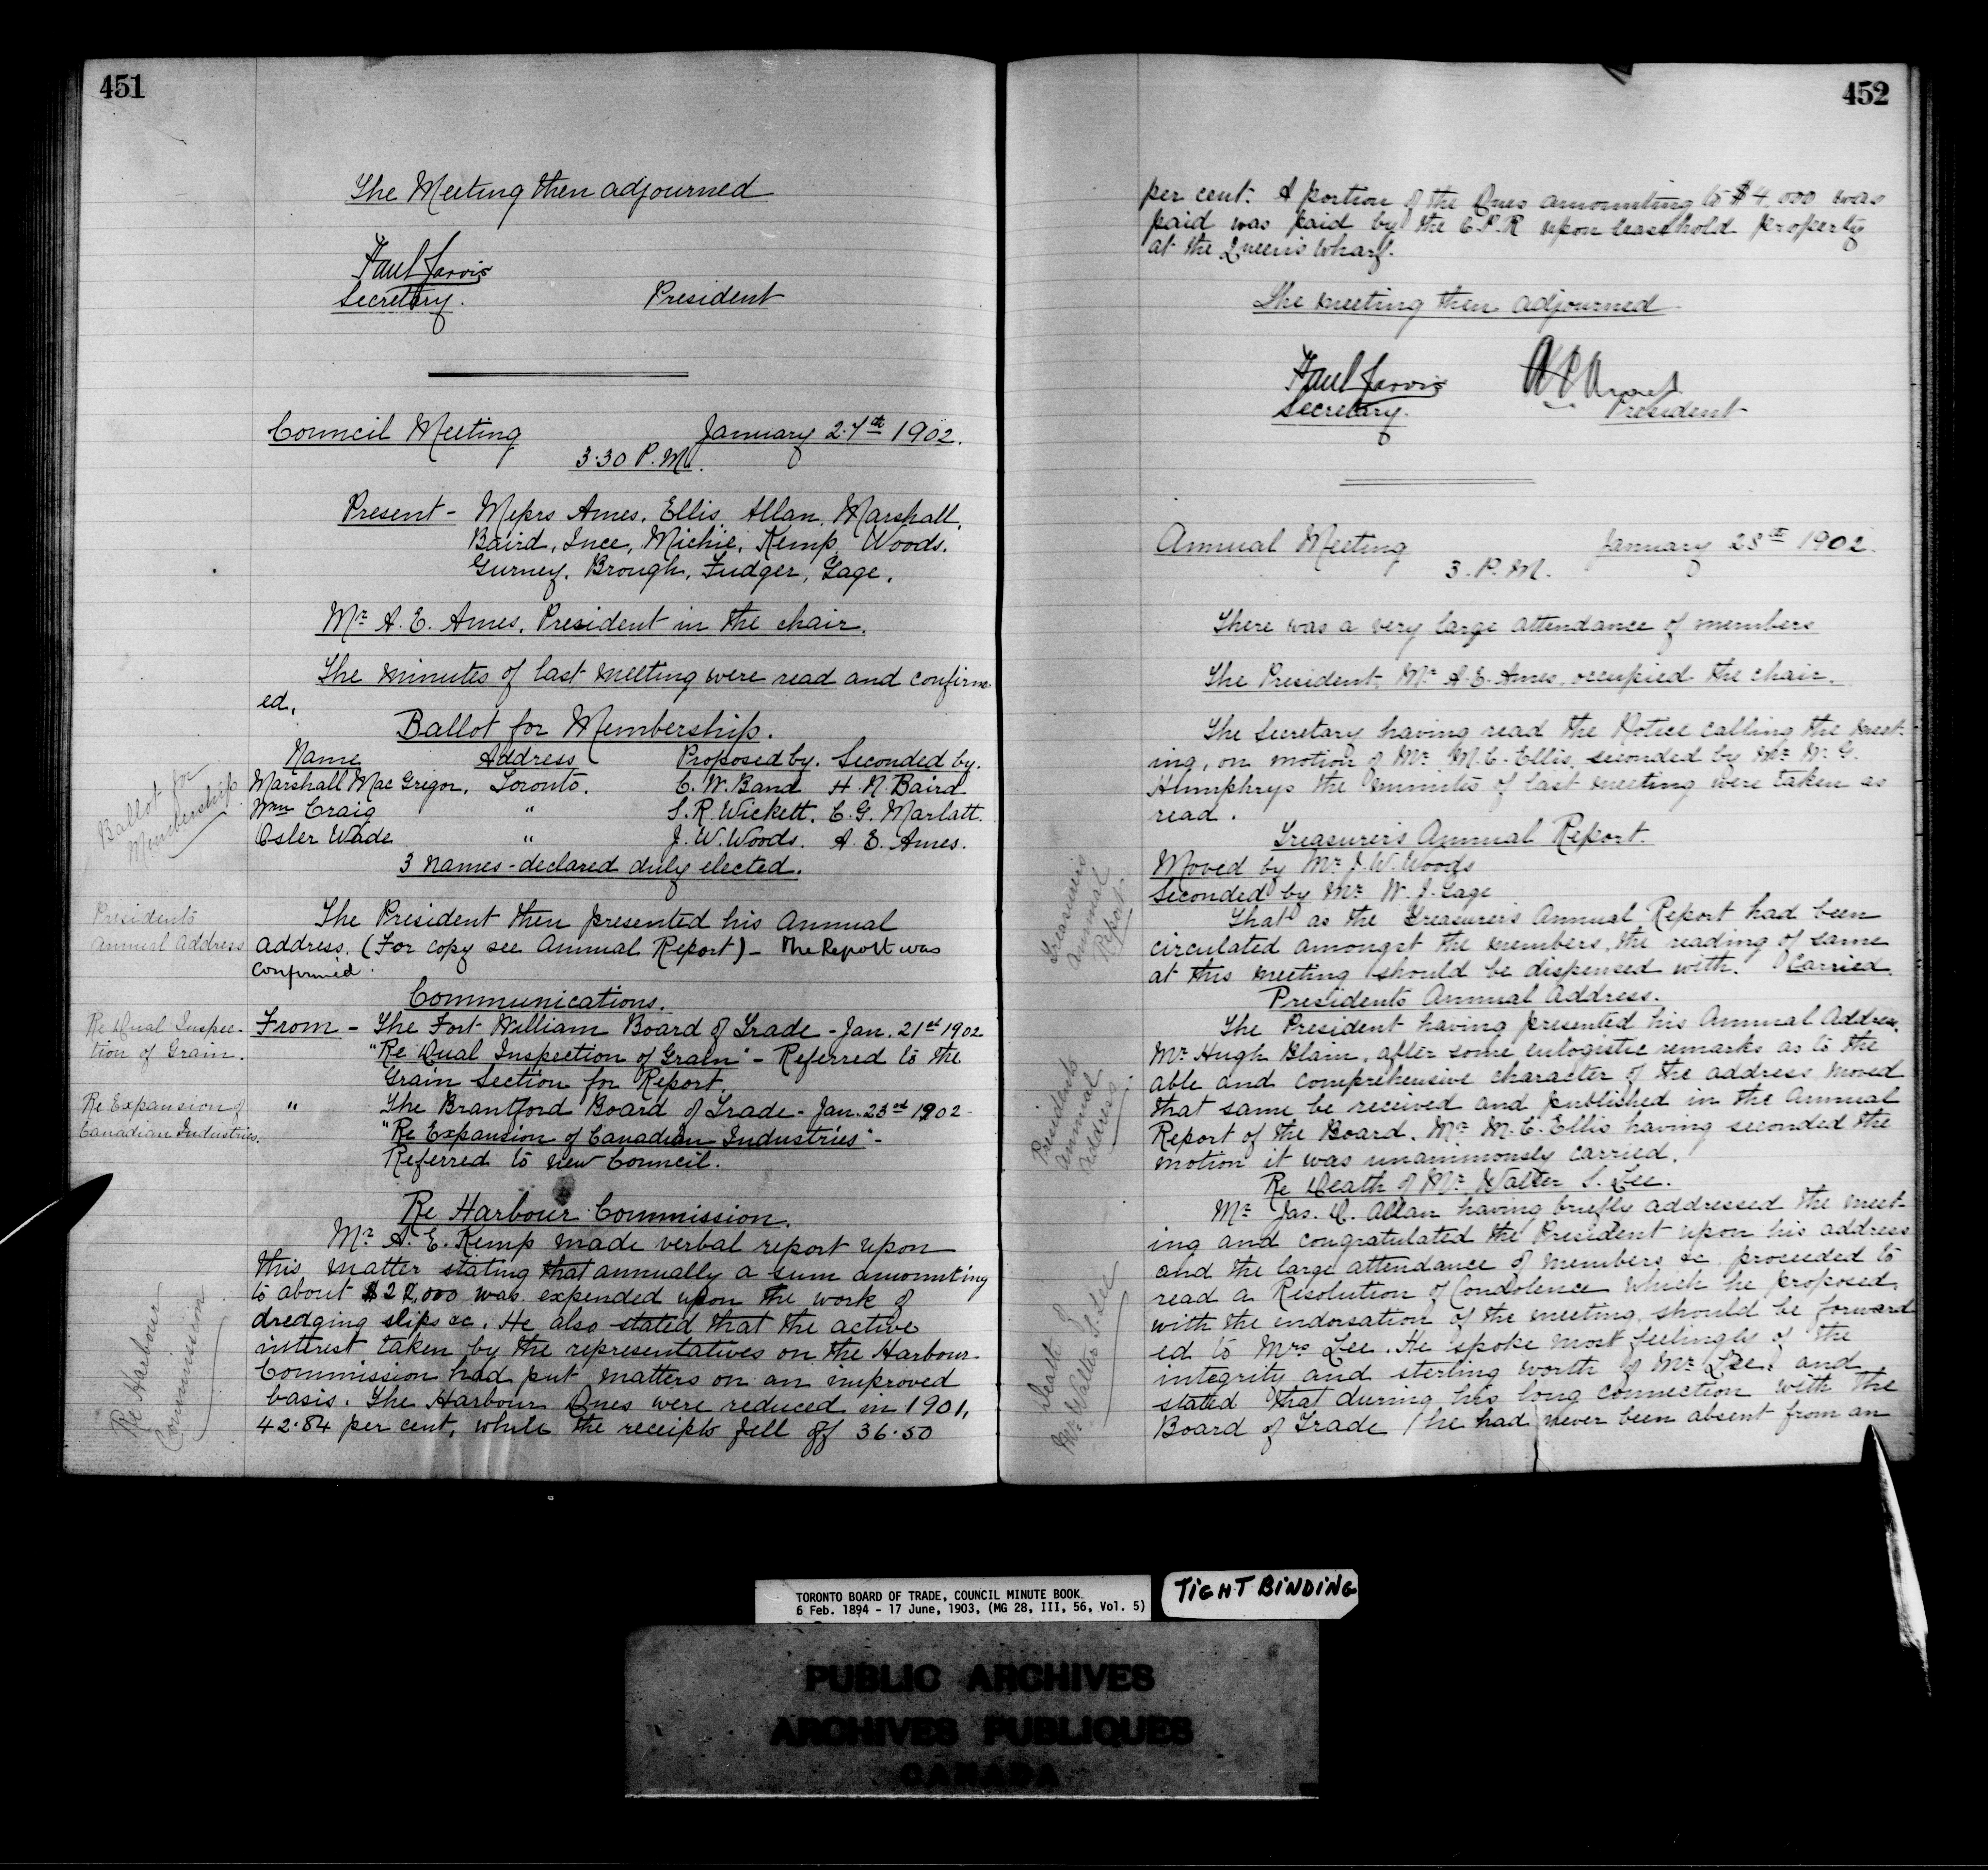 451
The Meeting then adjourned
Paul Jarvis
Secretary. President
Council Meeting January 27th 1902.
3.30 P.M.
Present - Messrs Ames, Ellis, Allan, Marshall,
Baird, Ince, Michie, Kemp, Woods,
Gurney, Brough, Fudger, Gage.
Mr A. E. Ames, President in the chair.
The minutes of last meeting were read and confirm-
ed.
Ballot for Membership.
Name Address Proposed by. Seconded by.
Marshall MacGregor. Toronto. C. W. Band H. N. Baird
Wm Craig " S. R. Wickett, C. G. Marlatt.
Osler Wade " J. W. Woods. A. E. Ames.
3 names - declared duly elected.
Ballot for
Membership
The President then presented his Annual
address. (For copy see Annual Report) - The Report was
confirmed.
Presidents
Annual Address
Communications.
From - The Fort William Board of Trade - Jan. 21st 1902
"Re Dual Inspection of Grain" - Referred to the
Grain Section for Report.
" The Brantford Board of Trade - Jan. 23rd 1902 -
"Re Expansion of Canadian Industries" -
Referred to new Council.
Re Dual Inspec-
tion of Grain.
Re Expansion of
Canadian Industries.
Re Harbour Commission.
Mr A. E. Kemp made verbal report upon
this matter stating that annually a sum amounting
to about was expended upon the work of
dredging slips &c. He also stated that the active
interest taken by the representatives on the Harbour
Commission had put matters on an improved
basis. The Harbour Dues were reduced in 1901,
42.84 per cent, while the receipts fell off 36.50
Re Harbour
Commission
452
per cent. A portion of the Dues amounting to $4,000 was
paid was paid by the C.P.R upon leasehold property
at the Queen's Wharf.
The meeting then adjourned
Paul Jarvis
Secretary. President
Annual Meeting January 28th 1902.
3. P.M.
There was a very large attendance of members
The President, Mr A. E. Ames, occupied the chair.
The Secretary having read the Notice calling the meet-
ing, on motion of Mr M. C. Ellis, seconded by Mr W. G.
Humphrys the minutes of last meeting were taken as
read.
Treasurer's Annual Report.
Moved by Mr J. W. Woods
Seconded by Mr W. J. Gage
That as the Treasurer's Annual Report had been
circulated amongst the members, the reading of same
at this meeting should be dispensed with. Carried.
Treasurer's
Annual
Report
Presidents Annual Address.
The President having presented his Annual Address,
Mr Hugh Blain, after some eulogistic remarks as to the
able and comprehensive character of the address moved
that same be received and published in the Annual
Report of the Board. Mr M. C. Ellis having seconded the
motion it was unanimously carried.
Presidents
Annual
Address.
Re Death of Mr Walter S. Lee.
Mr Jas. D. Allan having briefly addressed the meet-
ing and congratulated the President upon his address
and the large attendance of members &c, proceeded to
read a Resolution of Condolence which he proposed,
with the endorsation of the meeting, should be forward
ed to Mrs Lee. He spoke most feelingly of the
integrity and sterling worth of Mr Lee, and
stated that during his long connection with the
Board of Trade he had never been absent from an
Death of
Mr Walter S. Lee
TORONTO BOARD OF TRADE, COUNCIL MINUTE BOOK
6 Feb. 1894 - 17 June, 1903, (MG 28, III, 56, Vol. 5)
TIGHT BINDING
PUBLIC ARCHIVES
ARCHIVES PUBLIQUES
CANADA